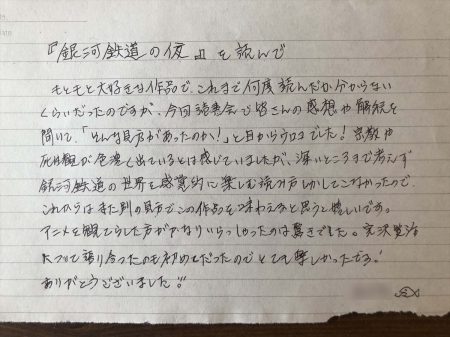 『銀河鉄道の夜』を読んで
もともと大好きな作品で、これまで何度読んだか分からない
くらいだったのですが、今回読書会で皆さんの感想や解釈を
聞いて、「そんな見方があったのか!」と目からウロコでした!宗教や
死生観が色濃く出ているとは感じていましたが、深いところまで考えず
銀河鉄道の世界を感覚的に楽しむ読み方しかしてこなかったので、
これからはまた別の見方でこの作品を味わえると思うと嬉しいです。
アニメを観てらした方がかなりいらっしゃったのは驚きでした。宮沢賢治
について語り合ったのも初めてだったのでとても楽しかったです!
ありがとうございました!!